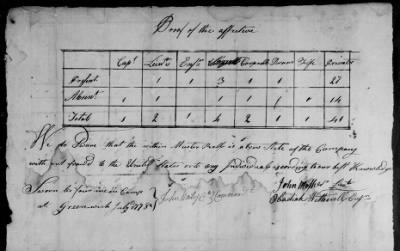 Proof of the effective
Capt Lieuts Ensn Sergts Corporals Drumr Fife Privates
Present 1 1 3 1 1 27
Absent 1 1 1 1 1 14
Total 1 2 1 4 2 1 1 41
We do Swear that the within Muster Roll is a true State of the Company
without fraud to the United States or to any Individual according to our best Knowledge
Sworn before me in Camp
at Greenwich July 1778
John Lieut
Obadiah